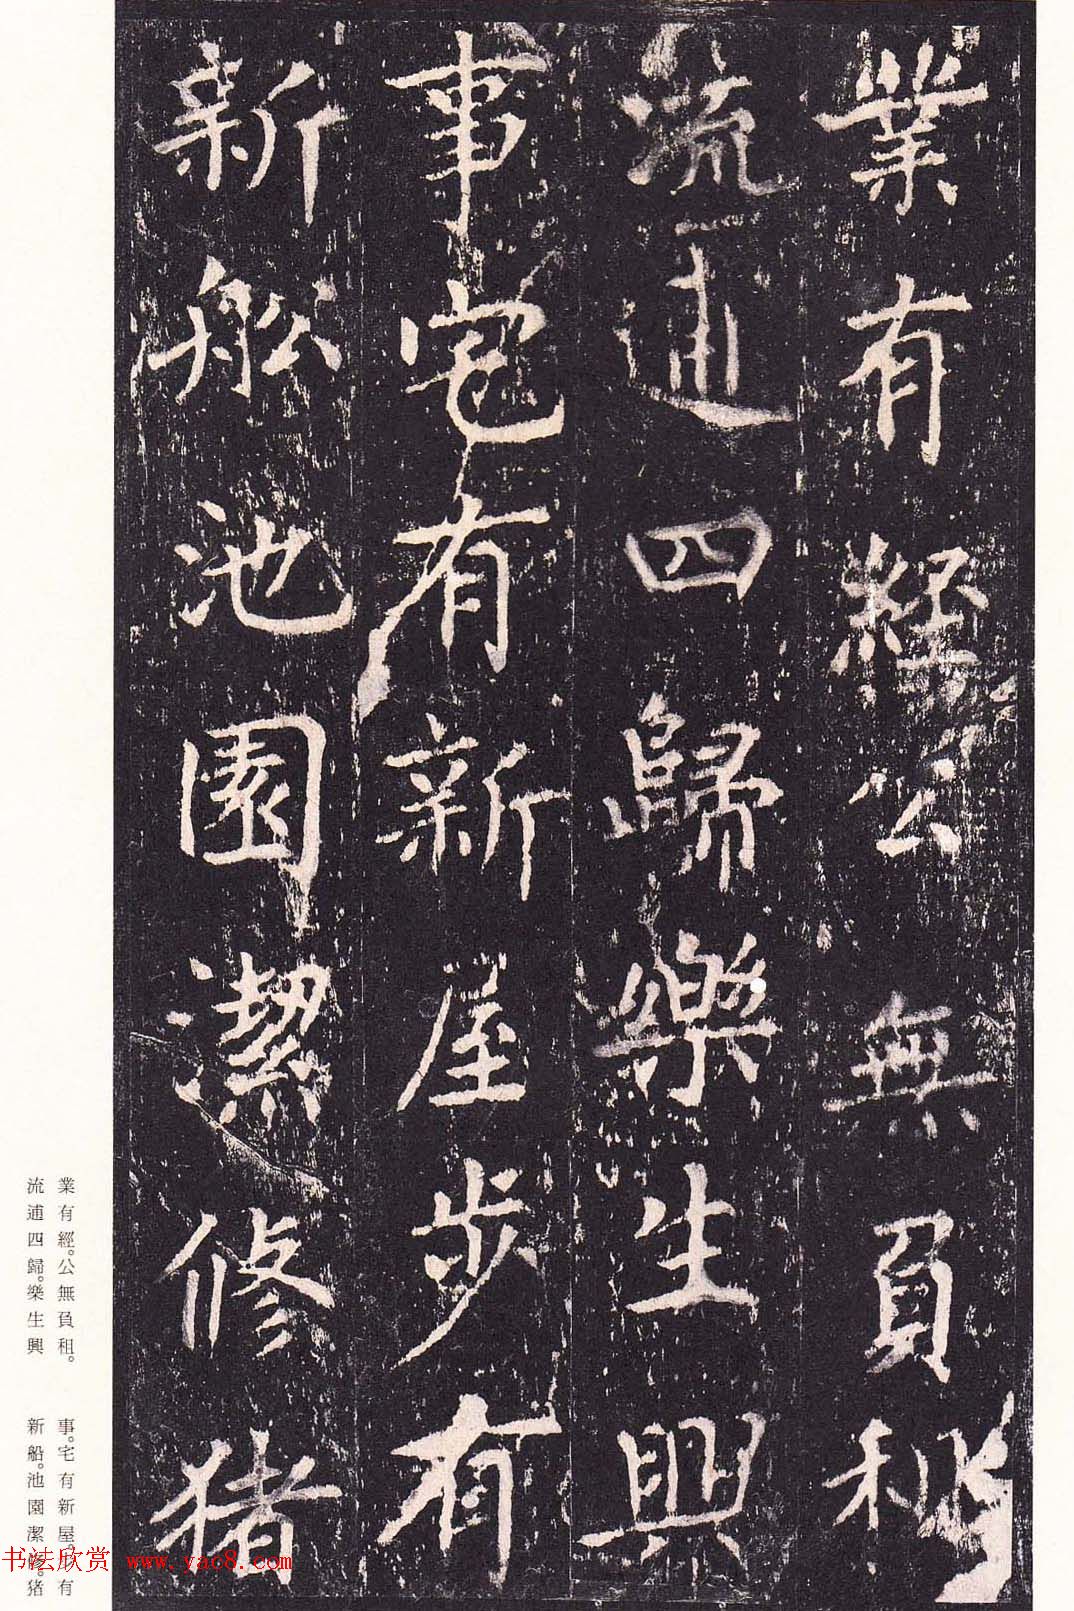 業有經公無負租
流逋四歸樂生興
事宅有新屋步有
新船池園潔修猪
業有經。公無負租。
流逋四歸。樂生興
事。宅有新屋。步有
新船。池園潔修。猪
书法欣赏 www.yac8.com